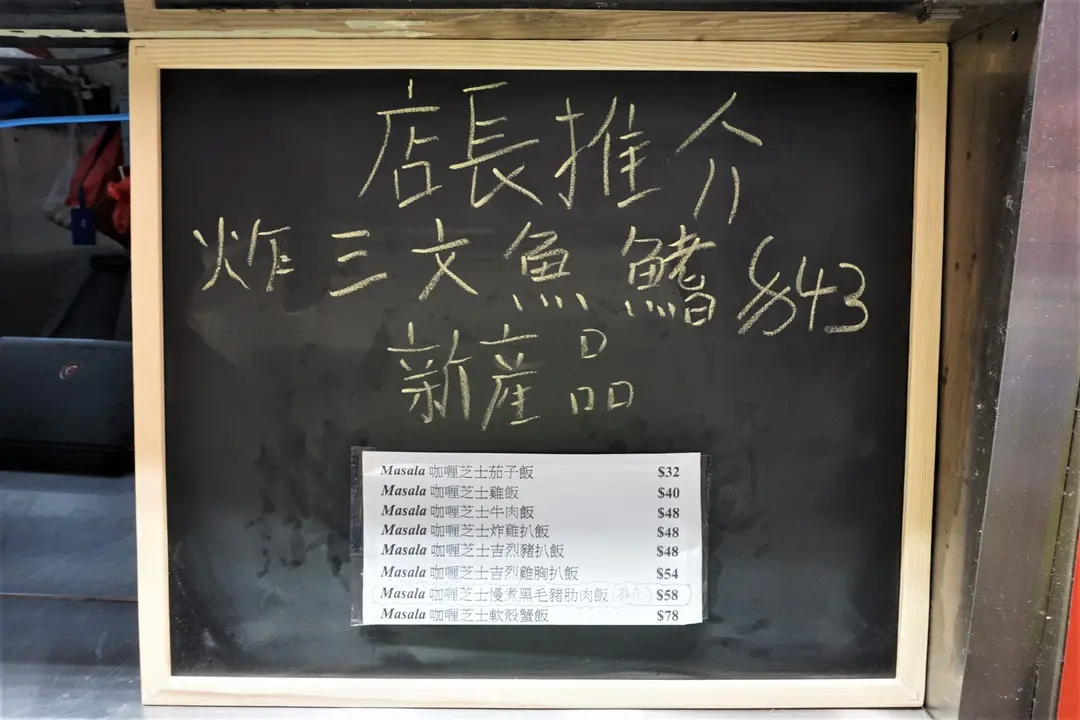 店長推介
炸三文魚鰭 $43
新產品
Masala 咖喱芝士茄子飯 $32
Masala 咖喱芝士雞飯 $40
Masala 咖喱芝士牛肉飯 $48
Masala 咖喱芝士炸雞扒飯 $48
Masala 咖喱芝士吉烈豬扒飯 $48
Masala 咖喱芝士吉烈雞胸扒飯 $54
Masala 咖喱芝士慢煮黑毛豬肋肉飯 推介 $58
Masala 咖喱芝士軟殼蟹飯 $78